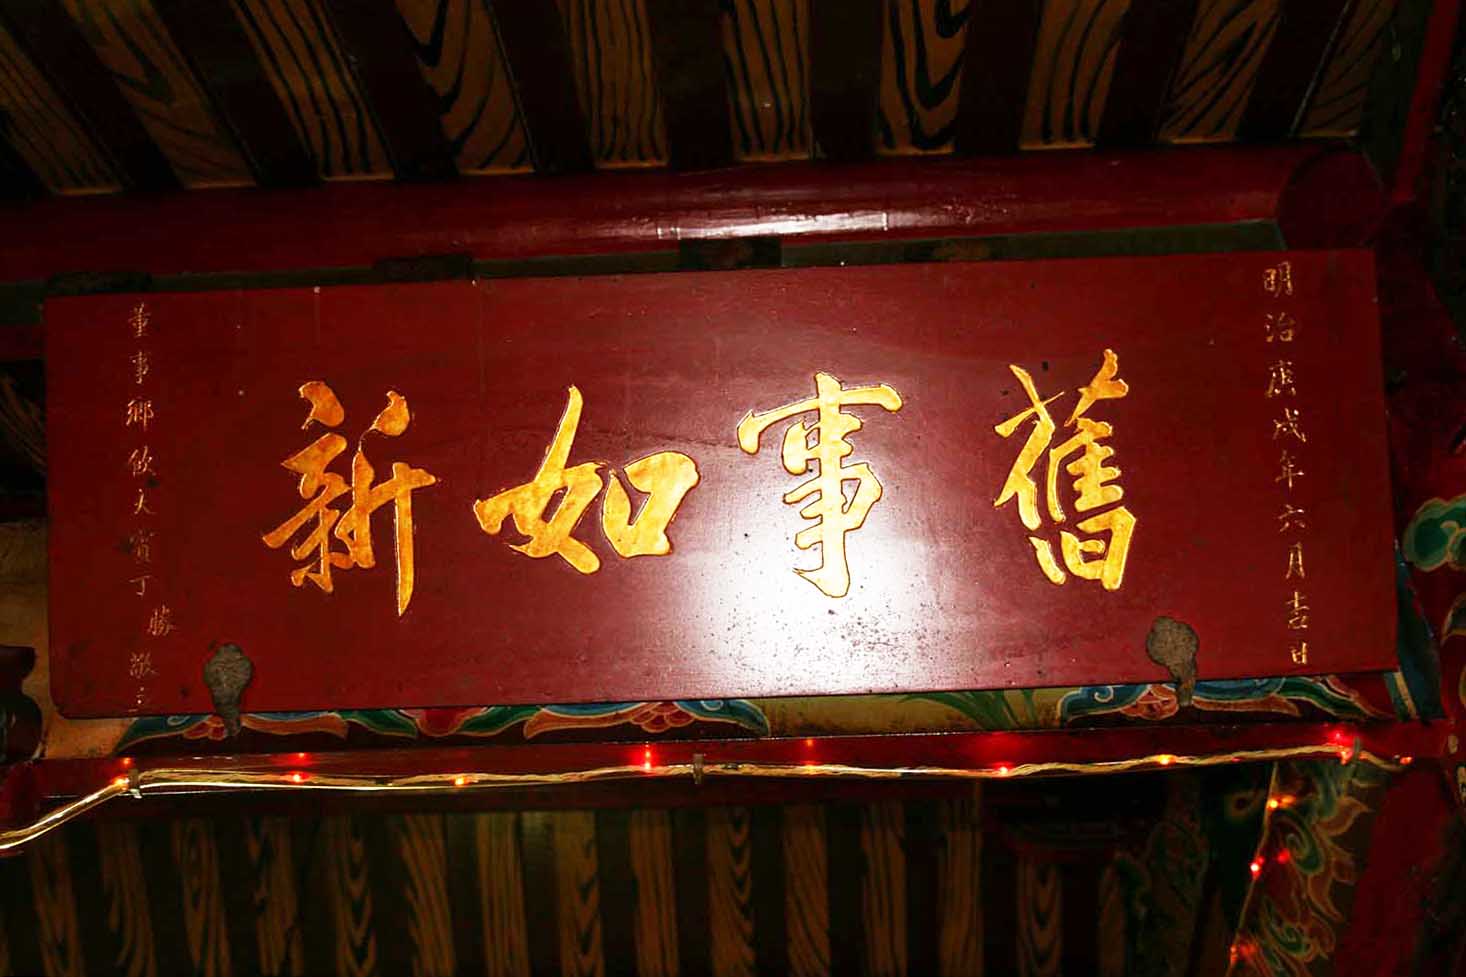 明治庚戌年六月吉日
舊事如新
董事鄉飲大賓丁勝敬立